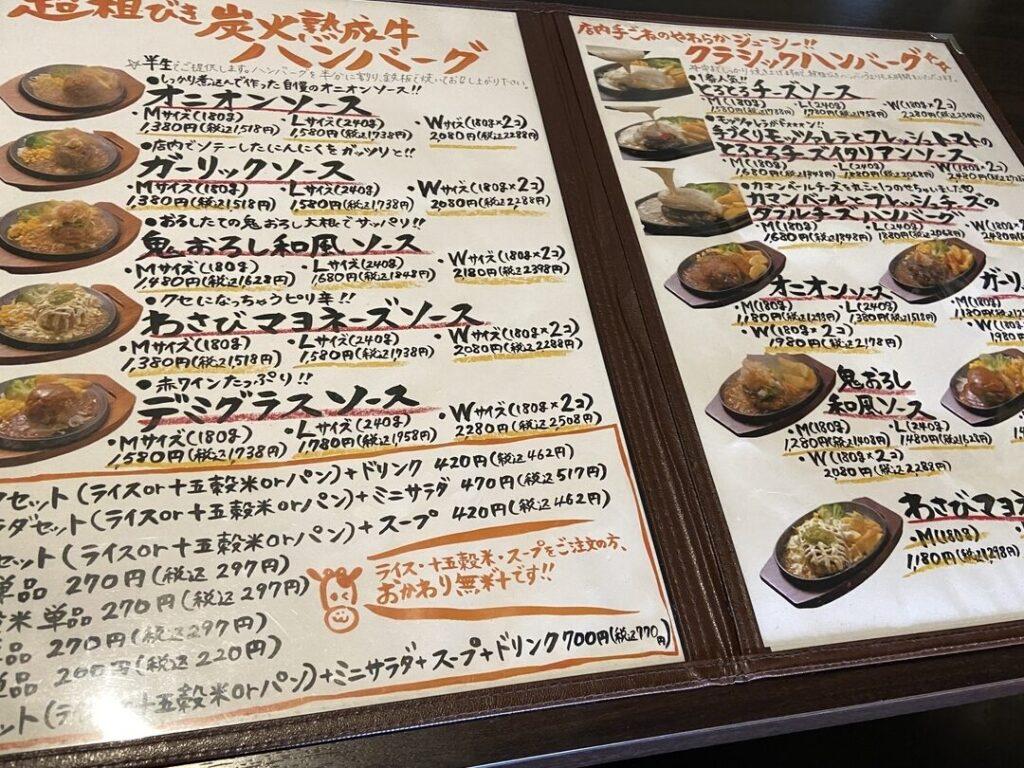 超粗びき 炭火熟成牛
ハンバーグ
☆半生でご提供します。ハンバーグを半分に割り、鉄板で焼いてお召し上がり下さい。
●しっかり煮込んで作った自慢のオニオンソース!!
オニオンソース
・Mサイズ(180g) 1,380円(税込1,518円)
・Lサイズ(240g) 1,580円(税込1738円)
・Wサイズ(180g×2コ) 2,080円(税込2288円)
●店内でソテーしたにんにくをガッツリと!!
ガーリックソース
・Mサイズ(180g) 1,380円(税込1,518円)
・Lサイズ(240g) 1,580円(税込1738円)
・Wサイズ(180g×2コ) 2,080円(税込2,288円)
●おろしたての鬼おろし大根でサッパリ!!
鬼おろし和風ソース
・Mサイズ(180g) 1,480円(税込1628円)
・Lサイズ(240g) 1,680円(税込1848円)
・Wサイズ(180g×2コ) 2180円(税込2398円)
●クセになっちゃうピリ辛!!
わさびマヨネーズソース
・Mサイズ(180g) 1,380円(税込1,518円)
・Lサイズ(240g) 1,580円(税込1738円)
・Wサイズ(180g×2コ) 2080円(税込2288円)
●赤ワインたっぷり!!
デミグラスソース
・Mサイズ(180g) 1,580円(税込1,738円)
・Lサイズ(240g) 1,780円(税込1,958円)
・Wサイズ(180g×2コ) 2,280円(税込2,508円)
セット(ライスor十五穀米orパン)+ドリンク 420円(税込462円)
ラダセット(ライスor十五穀米orパン)+ミニサラダ 470円(税込517円)
セット(ライスor十五穀米orパン)+スープ 420円(税込462円)
単品 270円(税込297円)
米単品 270円(税込297円)
品 270円(税込297円)
単品 200円(税込220円)
ライス・十五穀米・スープをご注文の方、
おかわり無料です!!
セット(ライスor十五穀米orパン)+ミニサラダ+スープ+ドリンク 700円(税込770円)
店内手ごねのやわらかジューシー!!
クラシックハンバーグ
●1番人気!!
とろとろチーズソース
・M(180g) 1,580円(税込1738円)
・L(240g) 1,780円(税込1958円)
・W(180g×2コ) 2280円(税込2508円)
手づくりモッツァレラとフレッシュトマトの
とろとろチーズイタリアンソース
・M(180g) 1,680円(税込1848円)
・L(240g) 1,880円(税込2,068円)
・W(180g×2コ)
●カマンベールチーズを丸ごと1つのせちゃいました♡
カマンベールとフレッシュチーズの
ダブルチーズハンバーグ
・M(180g) 1,680円(税込1848円)
・L(240g) 1,880円(税込2,068円)
・W(180g×2
オニオンソース
・M(180g) 1,180円(税込1,298円)
・L(240g) 1,380円(税込1,518円)
・W(180g×2コ) 1,980円(税込2,178円)
ガーリ
・M(180g)
・W(180g×
鬼おろし
和風ソース
・M(180g) 1,280円(税込1,408円)
・L(240g) 1,480円(税込1,628円)
・W(180g×2コ) 2,080円(税込2,288円)
わさびマヨネ
・M(180g) 1,180円(税込1,298円)